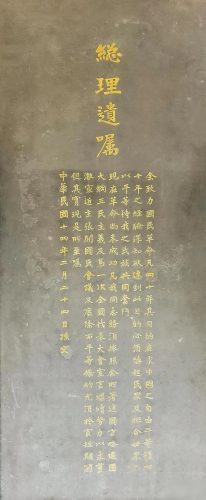 總理遺囑
余致力國民革命凡四十年其目的在求中國之自由平等積四
十年之經驗深知欲達到此目的必須喚起民眾及聯合世界上
以平等待我之民族共同奮鬥
現在革命尚未成功凡我同志務須依照余所著建國方略建國
大綱三民主義及第一次全國代表大會宣言繼續努力以求貫
澈最近主張開國民會議及廢除不平等條約尤須於最短期間
促其實現是所至囑
中華民國十四年二月二十四日孫文